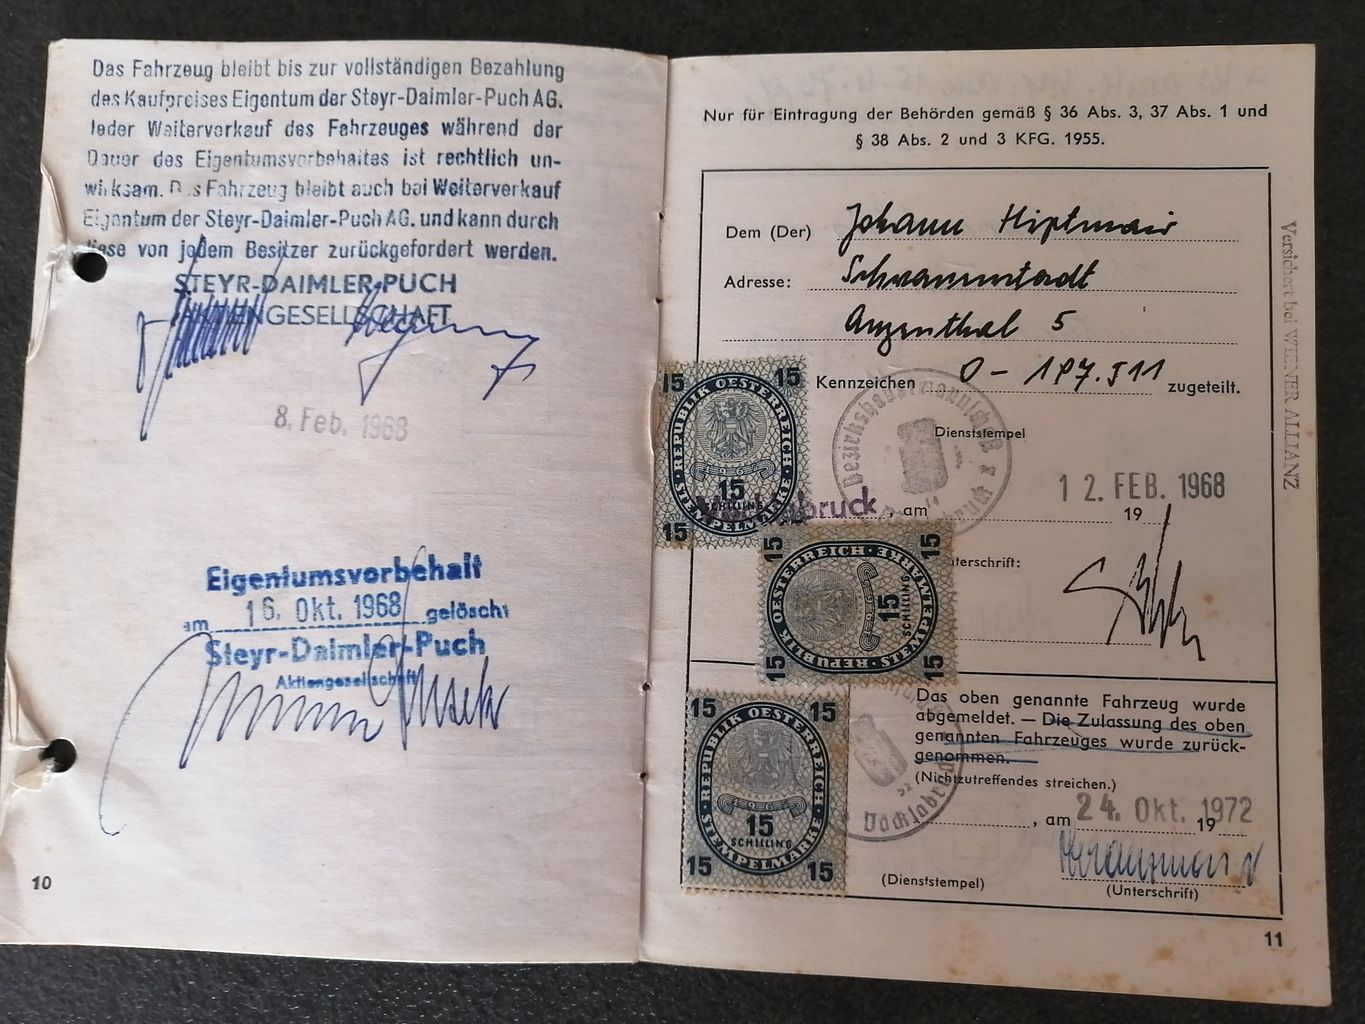 Das Fahrzeug bleibt bis zur vollständigen Bezahlung
des Kaufpreises Eigentum der Steyr-Daimler-Puch AG.
Jeder Weiterverkauf des Fahrzeuges während der
Dauer des Eigentumsvorbehaltes ist rechtlich un-
wirksam. Das Fahrzeug bleibt auch bei Weiterverkauf
Eigentum der Steyr-Daimler-Puch AG. und kann durch
diese von jedem Besitzer zurückgefordert werden.
STEYR-DAIMLER-PUCH
AKTIENGESELLSCHAFT
8. Feb. 1968
Eigentumsvorbehalt
am 16. Okt. 1968 gelöscht
Steyr-Daimler-Puch
Aktiengesellschaft
10
Nur für Eintragung der Behörden gemäß § 36 Abs. 3, 37 Abs. 1 und
§ 38 Abs. 2 und 3 KFG. 1955.
Dem (Der) Johann Hiptmair
Adresse: Schwanenstadt
5
Kennzeichen O - 197.511 zugeteilt.
Dienststempel
Bezirkshauptmannschaft
Vöcklabruck, am 12. FEB. 1968
19
Unterschrift:
15 15
REPUBLIK OESTERREICH
15
SCHILLING
STEMPELMARKE
15
15 15
REPUBLIK OESTERREICH
15
SCHILLING
STEMPELMARKE
15 15
15 15
REPUBLIK OESTERREICH
15
SCHILLING
STEMPELMARKE
15 15
Das oben genannte Fahrzeug wurde
abgemeldet. — Die Zulassung des oben
genannten Fahrzeuges wurde zurück-
genommen.
(Nichtzutreffendes streichen.)
Vöcklabruck
, am 24. Okt. 1972
19
(Dienststempel)
(Unterschrift)
11
Versichert bei WIENER ALLIANZ